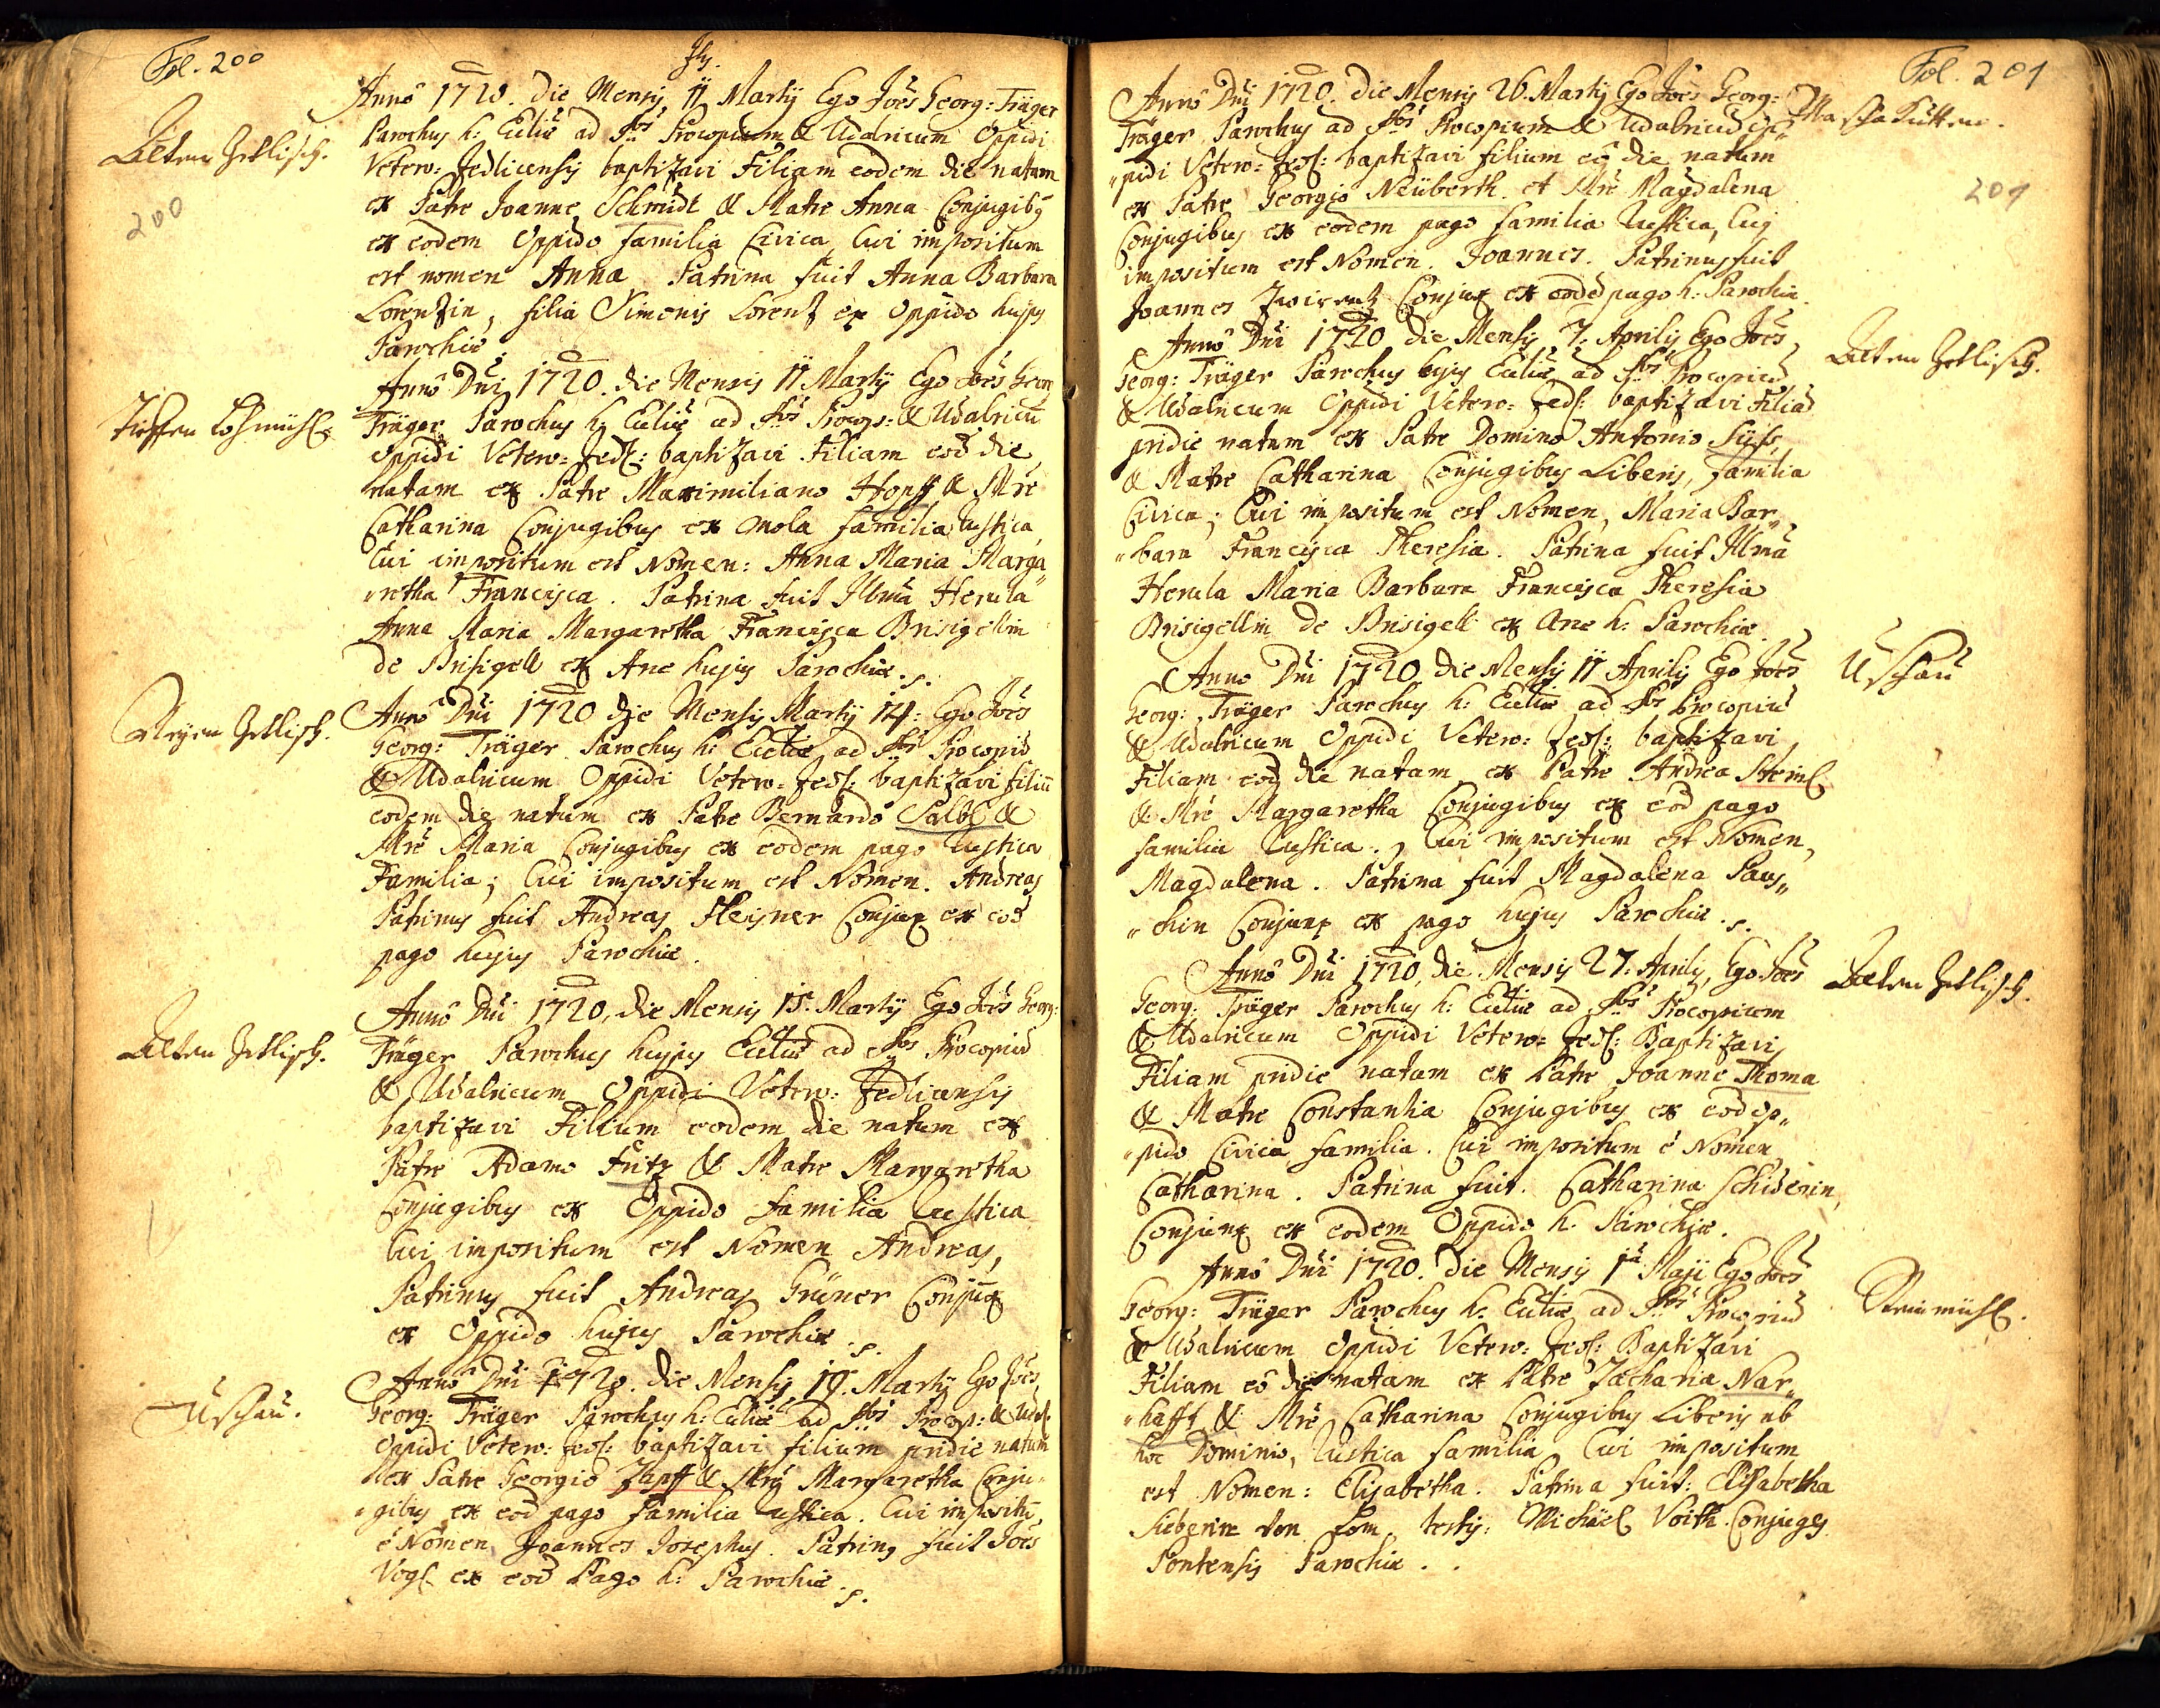 Fol. 200
Jhs.
Alten Zetlisch.
200
Anno 1720. die Mensis 11 Martij Ego Joes Georg: Träger
Parochus h: Eccliae ad Stos Procopium & Udalricum Oppidi
Vetero: Zedlicensis baptizavi Filiam eodem die natam
ex Patre Joanne Schmidt & Matre Anna Conjugibus
ex eodem Oppido familia Civica, Cui impositum
est nomen Anna. Patrina fuit Anna Barbara
Lorentzin, filia Simonis Lorentz ex Oppido hujus
Parochiae.
Tieffen Lohmühl:
Anno Dni 1720. die Mensis 11 Martij Ego Joes Geor
Träger Parochus h: Eccliae ad Stos Procop: & Udalricu
oppidi Vetero: Zedl: baptizavi Filiam eod die
natam ex Patre Maximiliano Hopff & Mre
Catharina Conjugibus ex mola familia rustica,
Cui impositum est Nomen: Anna Maria Marga„
„retha Francisca. Patrina fuit Illma Herula
Anna Maria Margaretha Francisca Brisigellin
de Brisigell ex Arce hujus Parochiae.
Neyen Zetlisch.
Anno Dni 1720 die Mensis Martij 14: Ego Joes
Georg: Träger Parochus h: Eccliae ad Stos Procopiu
& Udalricum Oppidi Vetero: Zedl: baptizavi filiu
eodem die natum ex Patre Bernardo Salbl &
Mre Maria Conjugibus ex eodem pago rustica
Familia; Cui impositum est Nomen. Andreas
Patrinus fuit Andreas Heisner Conjux ex eod
pago hujus Parochiae.
Alten Zetlisch.
Anno Dni 1720, die Mensis 15. Martij Ego Joes Georg:
Träger Parochus hujus Eccliae ad Stos Procopiu
& Udalricum Oppidi Vetero: Zedlicensis
baptizavi Filium eodem die natum ex
Patre Adamo Fritz & Matre Margaretha
Conjugibus ex Oppido familia rustica
Cui impositum est Nomen Andreas,
Patrinus fuit Andreas Grüner Conjux
ex Oppido hujus Parochiae.
Uschau.
Anno Dni 1720. die Mensis 19. Martij Ego Joes
Georg: Träger Parochus h: Eccliae ad Stos Procop: & Udal:
Oppidi Vetero: Zedl: baptizavi filium pridie natum
ex Patre Georgio Zapff & Mre Margaretha Conju„
„gibus ex eod pago familia rustica. Cui impositu
e Nomen Joannes Josephus. Patrinus fuit Joes
Vogl ex eod Pago h: Parochiae.
Fol. 201
Maschakutten.
201
Anno Dni 1720. die Mensis 26. Martij Ego Joes Georg:
Träger Parochus ad Stos Procopium & Udalricu Op„
„pidi Vetero: Zedl: baptizavi filium eo die natum
ex Patre Georgio Neüberth et Mre Magdalena
Conjugibus ex eodem pago familia rustica, Cui
impositum est Nomen. Joannes. Patrinus fuit
Joannes Conjux ex eoded pago h: Parochiae.
Alten Zetlisch.
Anno Dni 1720 die Mensis 7. Aprilis Ego Joes
Georg: Träger Parochus hujus Eccliae ad Stos Procopiu
& Udalricum Oppidi Vetero: Zedl: baptizavi Filia
pridie natam ex Patre Domino Antonio Süss
& Matre Catharina Conjugibus Liberis, familia
Civica; Cui impositum est Nomen, Maria Bar„
„bara Francisca Theresia. Patrina fuit Illma
Herula Maria Barbara Francisca Theresia
Brisigellin de Brisigell ex Arce h: Parochiae.
Uschau
Anno Dni 1720 die Mensis 11 Aprilis Ego Joes
Georg: Träger Parochus h: Eccliae ad Stos Procopiu
& Udalricum Oppidi Vetero: Zedl: baptizavi
Filiam eod die natam ex Patre Andrea Steinl
& Mre Margaretha Conjugibus ex eod pago
familia rustica. Cui impositum est Nomen,
Magdalena. Patrina fuit Magdalena Paus„
„chin Conjunx ex pago hujus Parochiae.
Alten Zetlisch.
Anno Dni 1720, die Mensis 27. Aprilis, Ego Joes
Georg: Träger Parochus h: Eccliae ad Stos Procopium
& Udalricum Oppidi Vetero: Zedl: Baptizavi
Filiam pridie natam ex Patre Joanne Thoma
& Matre Constantia Conjugibus ex eod op„
„pido Civica familia. Cui impositum e Nomen
Catharina. Patrina fuit. Catharina Schiderin,
Conjunx ex eodem Oppido h. Parochiae.
Steinmühl.
Anno Dni 1720. die Mensis 1ma Maji Ego Joes
Georg: Träger Parochus h: Eccliae ad Stos Procopiu
& Udalricum Oppidi Vetero: Zedl: Baptizavi
Filiam eo die natam ex Patre Zacharia Nar„
„hafft & Mre Catharina Conjugibus Liberis ab
hoc Dominio, rustica familia, Cui impositum
est Nomen: Elisabetha. Patrina fuit: Elisabetha
Sieberin von testis: Michael Voith. Conjuges
Pontensis Parochiae.